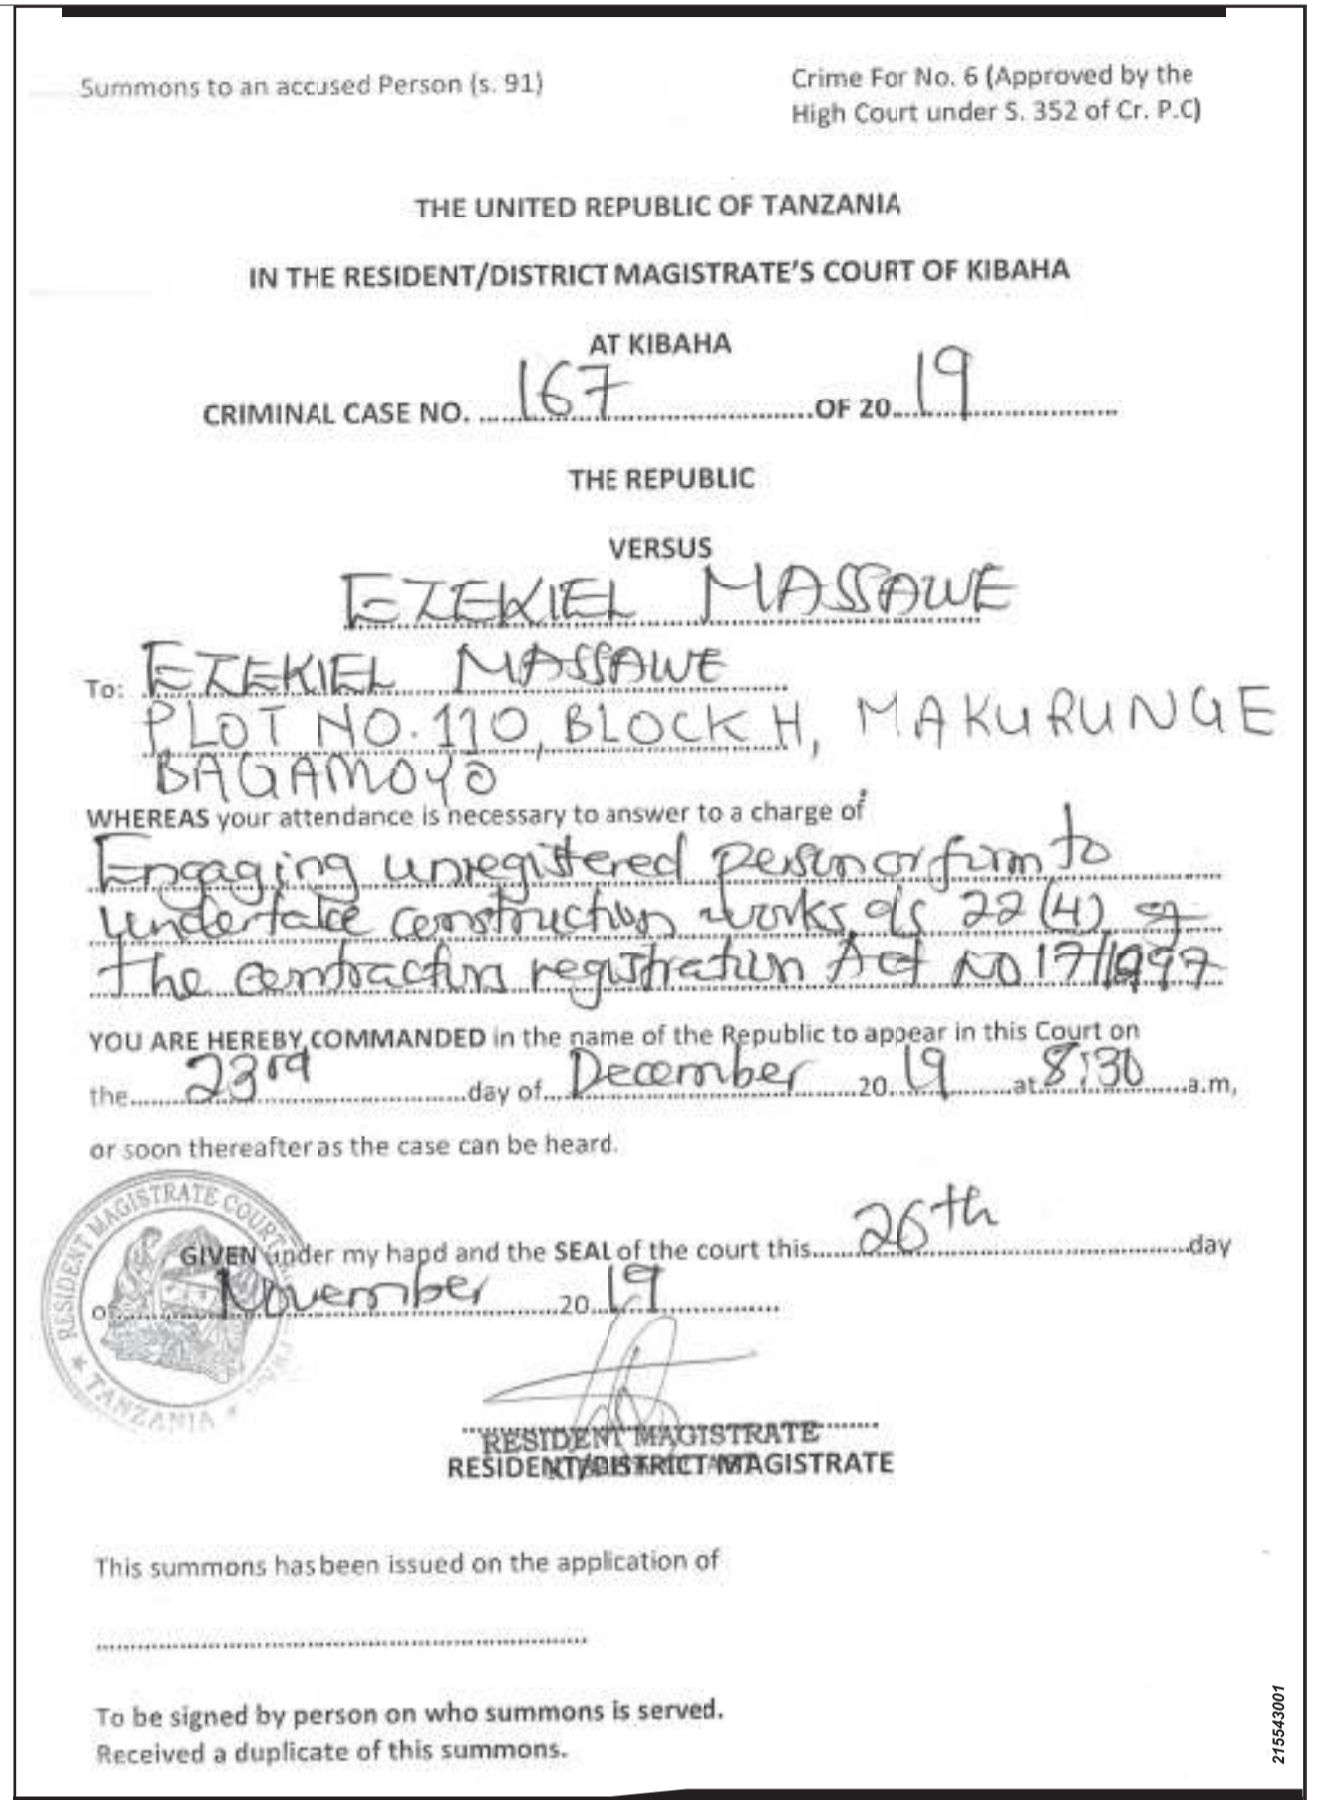 Summons to an accused Person (s. 91)
Crime For No. 6 (Approved by the
High Court under S. 352 of Cr. P.C)
THE UNITED REPUBLIC OF TANZANIA
IN THE RESIDENT/DISTRICT MAGISTRATE'S COURT OF KIBAHA
AT KIBAHA
CRIMINAL CASE NO. 167 OF 20 19
THE REPUBLIC
VERSUS
EZEKIEL MASSAWE
To: EZEKIEL MASSAWE
PLOT NO. 110, BLOCK H, MAKURUNGE
BAGAMOYO
WHEREAS your attendance is necessary to answer to a charge of
Engaging unregistered person or firm to
undertake construction works 22 (4) of
the contractors registration Act NO 17/1997
YOU ARE HEREBY COMMANDED in the name of the Republic to appear in this Court on
the 23rd day of December 20 19 at 8:30 a.m,
or soon thereafter as the case can be heard.
RESIDENT MAGISTRATE COURT
TANZANIA
GIVEN under my hand and the SEAL of the court this 26th day
of November 20 19
RESIDENT MAGISTRATE
RESIDENT/DISTRICT MAGISTRATE
This summons has been issued on the application of
To be signed by person on who summons is served.
Received a duplicate of this summons.
215543001